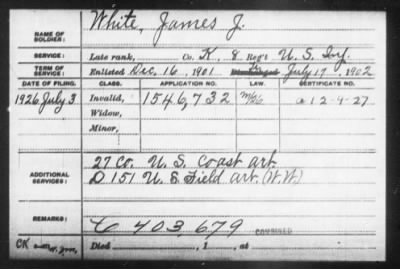 White, James J.
NAME OF SOLDIER:
SERVICE: Late rank, Co. K, 8 Reg't U. S. Inf.
TERM OF SERVICE: Enlisted Dec. 16, 1901 July 17, 1902
DATE OF FILING. CLASS. APPLICATION NO. LAW. CERTIFICATE NO.
1926 July 3 Invalid, 1546,732 a 12-4-27.
Widow,
Minor,
ADDITIONAL SERVICES: 27 Co. U. S. Coast art.
D 151 U. S. Field art. (W.W.)
REMARKS: C 403,679 COMBINED
Died , 1 , at
CK